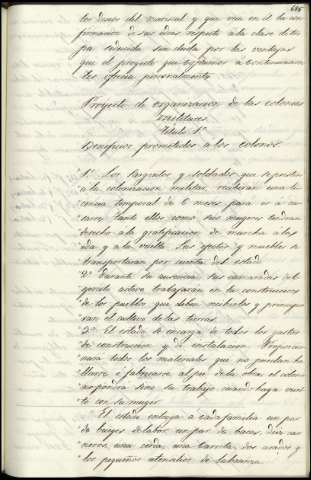 685
los deseos del mariscal y que veia en él la con-
firmacion de sus ideas respecto a la clase de tro-
pa seducida sin duda por las ventajas
que el proyecto que copiamos a continuacion
les ofrecia personalmente
Proyecto de organizacion de las colonias
militares
Titulo 1º
Beneficios prometidos a los colonos.
1º Los sargentos y soldados que se presten
a la colonizacion militar, recibirán una li-
cencia temporal de 6 meses para ir á ca-
sarse, tanto ellos como sus mugeres tendran
derecho a la gratificacion de marcha a la
ida y a la vuelta. Sus efectos y muebles se
transportarán por cuenta del estado.
2º Durante su ausencia sus camaradas del
servicio activo trabajarán en la construccion
de los pueblos que deben recibirlos y prepara-
ran el cultivo de las tierras.
3º El estado se encarga de todos los gastos
de construccion y de instalacion. Proporcio-
nará todos los materiales que no puedan ha-
llarse ó fabricarse al pié de la obra el colono
no pondrá sino su trabajo cuando haya vuel-
to con su muger
El estado entrega á cada familia un par
de bueyes de labor, un par de vacas, diez car-
neros, una cerda, una carreta, dos arados y
los pequeños utensilios de labranza.